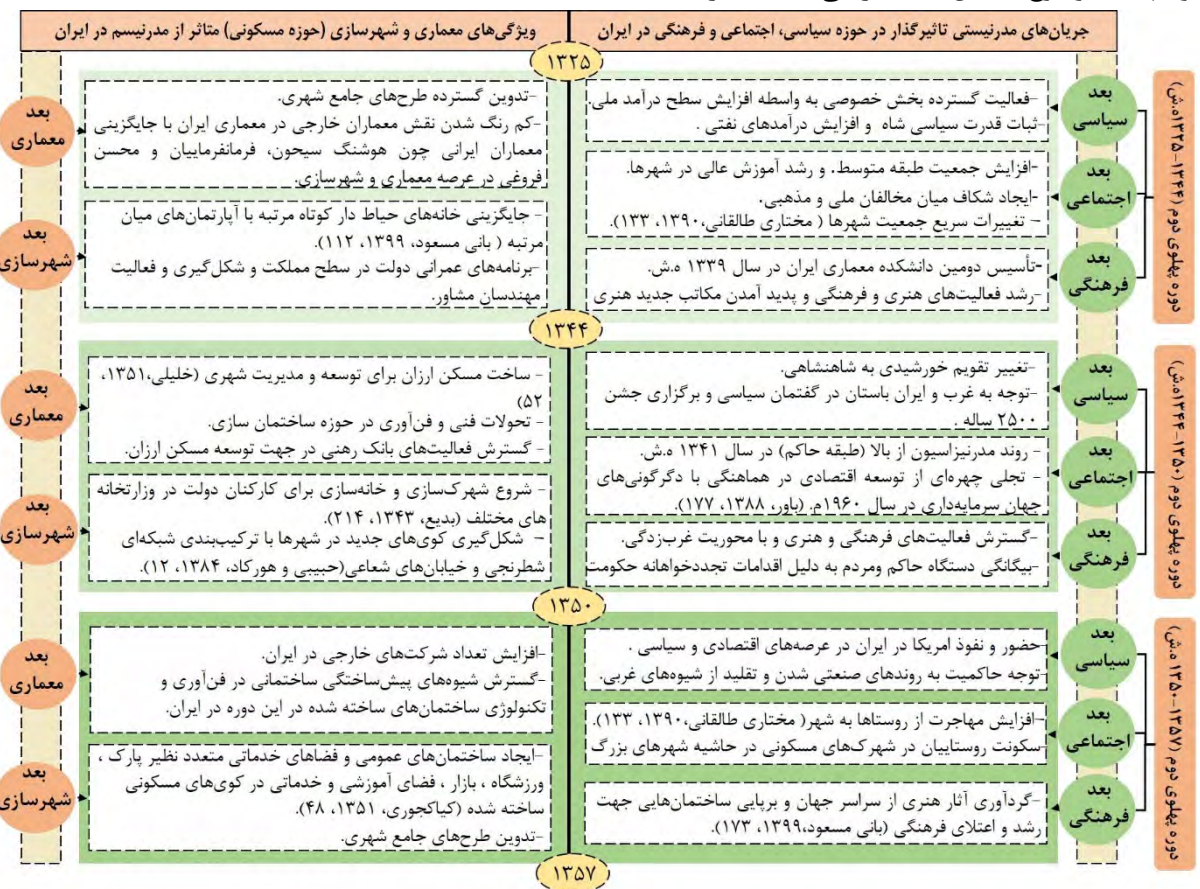 جریان‌های مدرنیستی تاثیرگذار در حوزه سیاسی، اجتماعی و فرهنگی در ایران
ویژگی‌های معماری و شهرسازی (حوزه مسکونی) متاثر از مدرنیسم در ایران
۱۳۲۵
دوره پهلوی دوم (۱۳۴۴-۱۳۲۵ه.ش)
بعد
سیاسی
-فعالیت گسترده بخش خصوصی به واسطه افزایش سطح درآمد ملی.
-ثبات قدرت سیاسی شاه و افزایش درآمدهای نفتی .
بعد
اجتماعی
-افزایش جمعیت طبقه متوسط. و رشد آموزش عالی در شهرها.
-ایجاد شکاف میان مخالفان ملی و مذهبی.
- تغییرات سریع جمعیت شهرها ( مختاری طالقانی،۱۳۹۰، ۱۳۳).
بعد
فرهنگی
-تأسیس دومین دانشکده معماری ایران در سال ۱۳۳۹ ه.ش.
-رشد فعالیت‌های هنری و فرهنگی و پدید آمدن مکاتب جدید هنری
بعد
معماری
-تدوین گسترده طرح‌های جامع شهری.
-کم رنگ شدن نقش معماران خارجی در معماری ایران با جایگزینی
معماران ایرانی چون هوشنگ سیحون، فرمانفرماییان و محسن
فروغی در عرصه معماری و شهرسازی.
بعد
شهرسازی
- جایگزینی خانه‌های حیاط دار کوتاه مرتبه با آپارتمان‌های میان
مرتبه ( بانی مسعود، ۱۳۹۹، ۱۱۲).
-برنامه‌های عمرانی دولت در سطح مملکت و شکل‌گیری و فعالیت
مهندسان مشاور.
۱۳۴۴
دوره پهلوی دوم (۱۳۵۰-۱۳۴۴ه.ش)
بعد
سیاسی
-تغییر تقویم خورشیدی به شاهنشاهی.
-توجه به غرب و ایران باستان در گفتمان سیاسی و برگزاری جشن
۲۵۰۰ ساله .
بعد
اجتماعی
- روند مدرنیزاسیون از بالا (طبقه حاکم) در سال ۱۳۴۱ ه.ش.
- تجلی چهره‌ای از توسعه اقتصادی در هماهنگی با دگرگونی‌های
جهان سرمایه‌داری در سال ۱۹۶۰م. (باور، ۱۳۸۸، ۱۷۷).
بعد
فرهنگی
-گسترش فعالیت‌های فرهنگی و هنری و با محوریت غرب‌زدگی.
-بیگانگی دستگاه حاکم ومردم به دلیل اقدامات تجددخواهانه حکومت
بعد
معماری
- ساخت مسکن ارزان برای توسعه و مدیریت شهری (خلیلی،۱۳۵۱،
۵۲)
- تحولات فنی و فن‌آوری در حوزه ساختمان سازی.
- گسترش فعالیت‌های بانک رهنی در جهت توسعه مسکن ارزان.
بعد
شهرسازی
- شروع شهرک‌سازی و خانه‌سازی برای کارکنان دولت در وزارتخانه
های مختلف (بدیع، ۱۳۴۳، ۲۱۴).
- شکل‌گیری کوی‌های جدید در شهرها با ترکیب‌بندی شبکه‌ای
شطرنجی و خیابان‌های شعاعی(حبیبی و هورکاد، ۱۳۸۴، ۱۲).
۱۳۵۰
دوره پهلوی دوم (۱۳۵۷-۱۳۵۰ ه.ش)
بعد
سیاسی
-حضور و نفوذ امریکا در ایران در عرصه‌های اقتصادی و سیاسی .
-توجه حاکمیت به روندهای صنعتی شدن و تقلید از شیوه‌های غربی.
بعد
اجتماعی
-افزایش مهاجرت از روستاها به شهر( مختاری طالقانی،۱۳۹۰، ۱۳۳).
-سکونت روستاییان در شهرک‌های مسکونی در حاشیه شهرهای بزرگ
بعد
فرهنگی
-گردآوری آثار هنری از سراسر جهان و برپایی ساختمان‌هایی جهت
رشد و اعتلای فرهنگی (بانی مسعود،۱۳۹۹، ۱۷۳).
بعد
معماری
-افزایش تعداد شرکت‌های خارجی در ایران.
-گسترش شیوه‌های پیش‌ساختگی ساختمانی در فن‌آوری و
تکنولوژی ساختمان‌های ساخته شده در این دوره در ایران.
بعد
شهرسازی
-ایجاد ساختمان‌های عمومی و فضاهای خدماتی متعدد نظیر پارک ،
ورزشگاه ، بازار ، فضای آموزشی و خدماتی در کوی‌های مسکونی
ساخته شده (کیاکجوری، ۱۳۵۱، ۴۸).
-تدوین طرح‌های جامع شهری.
۱۳۵۷